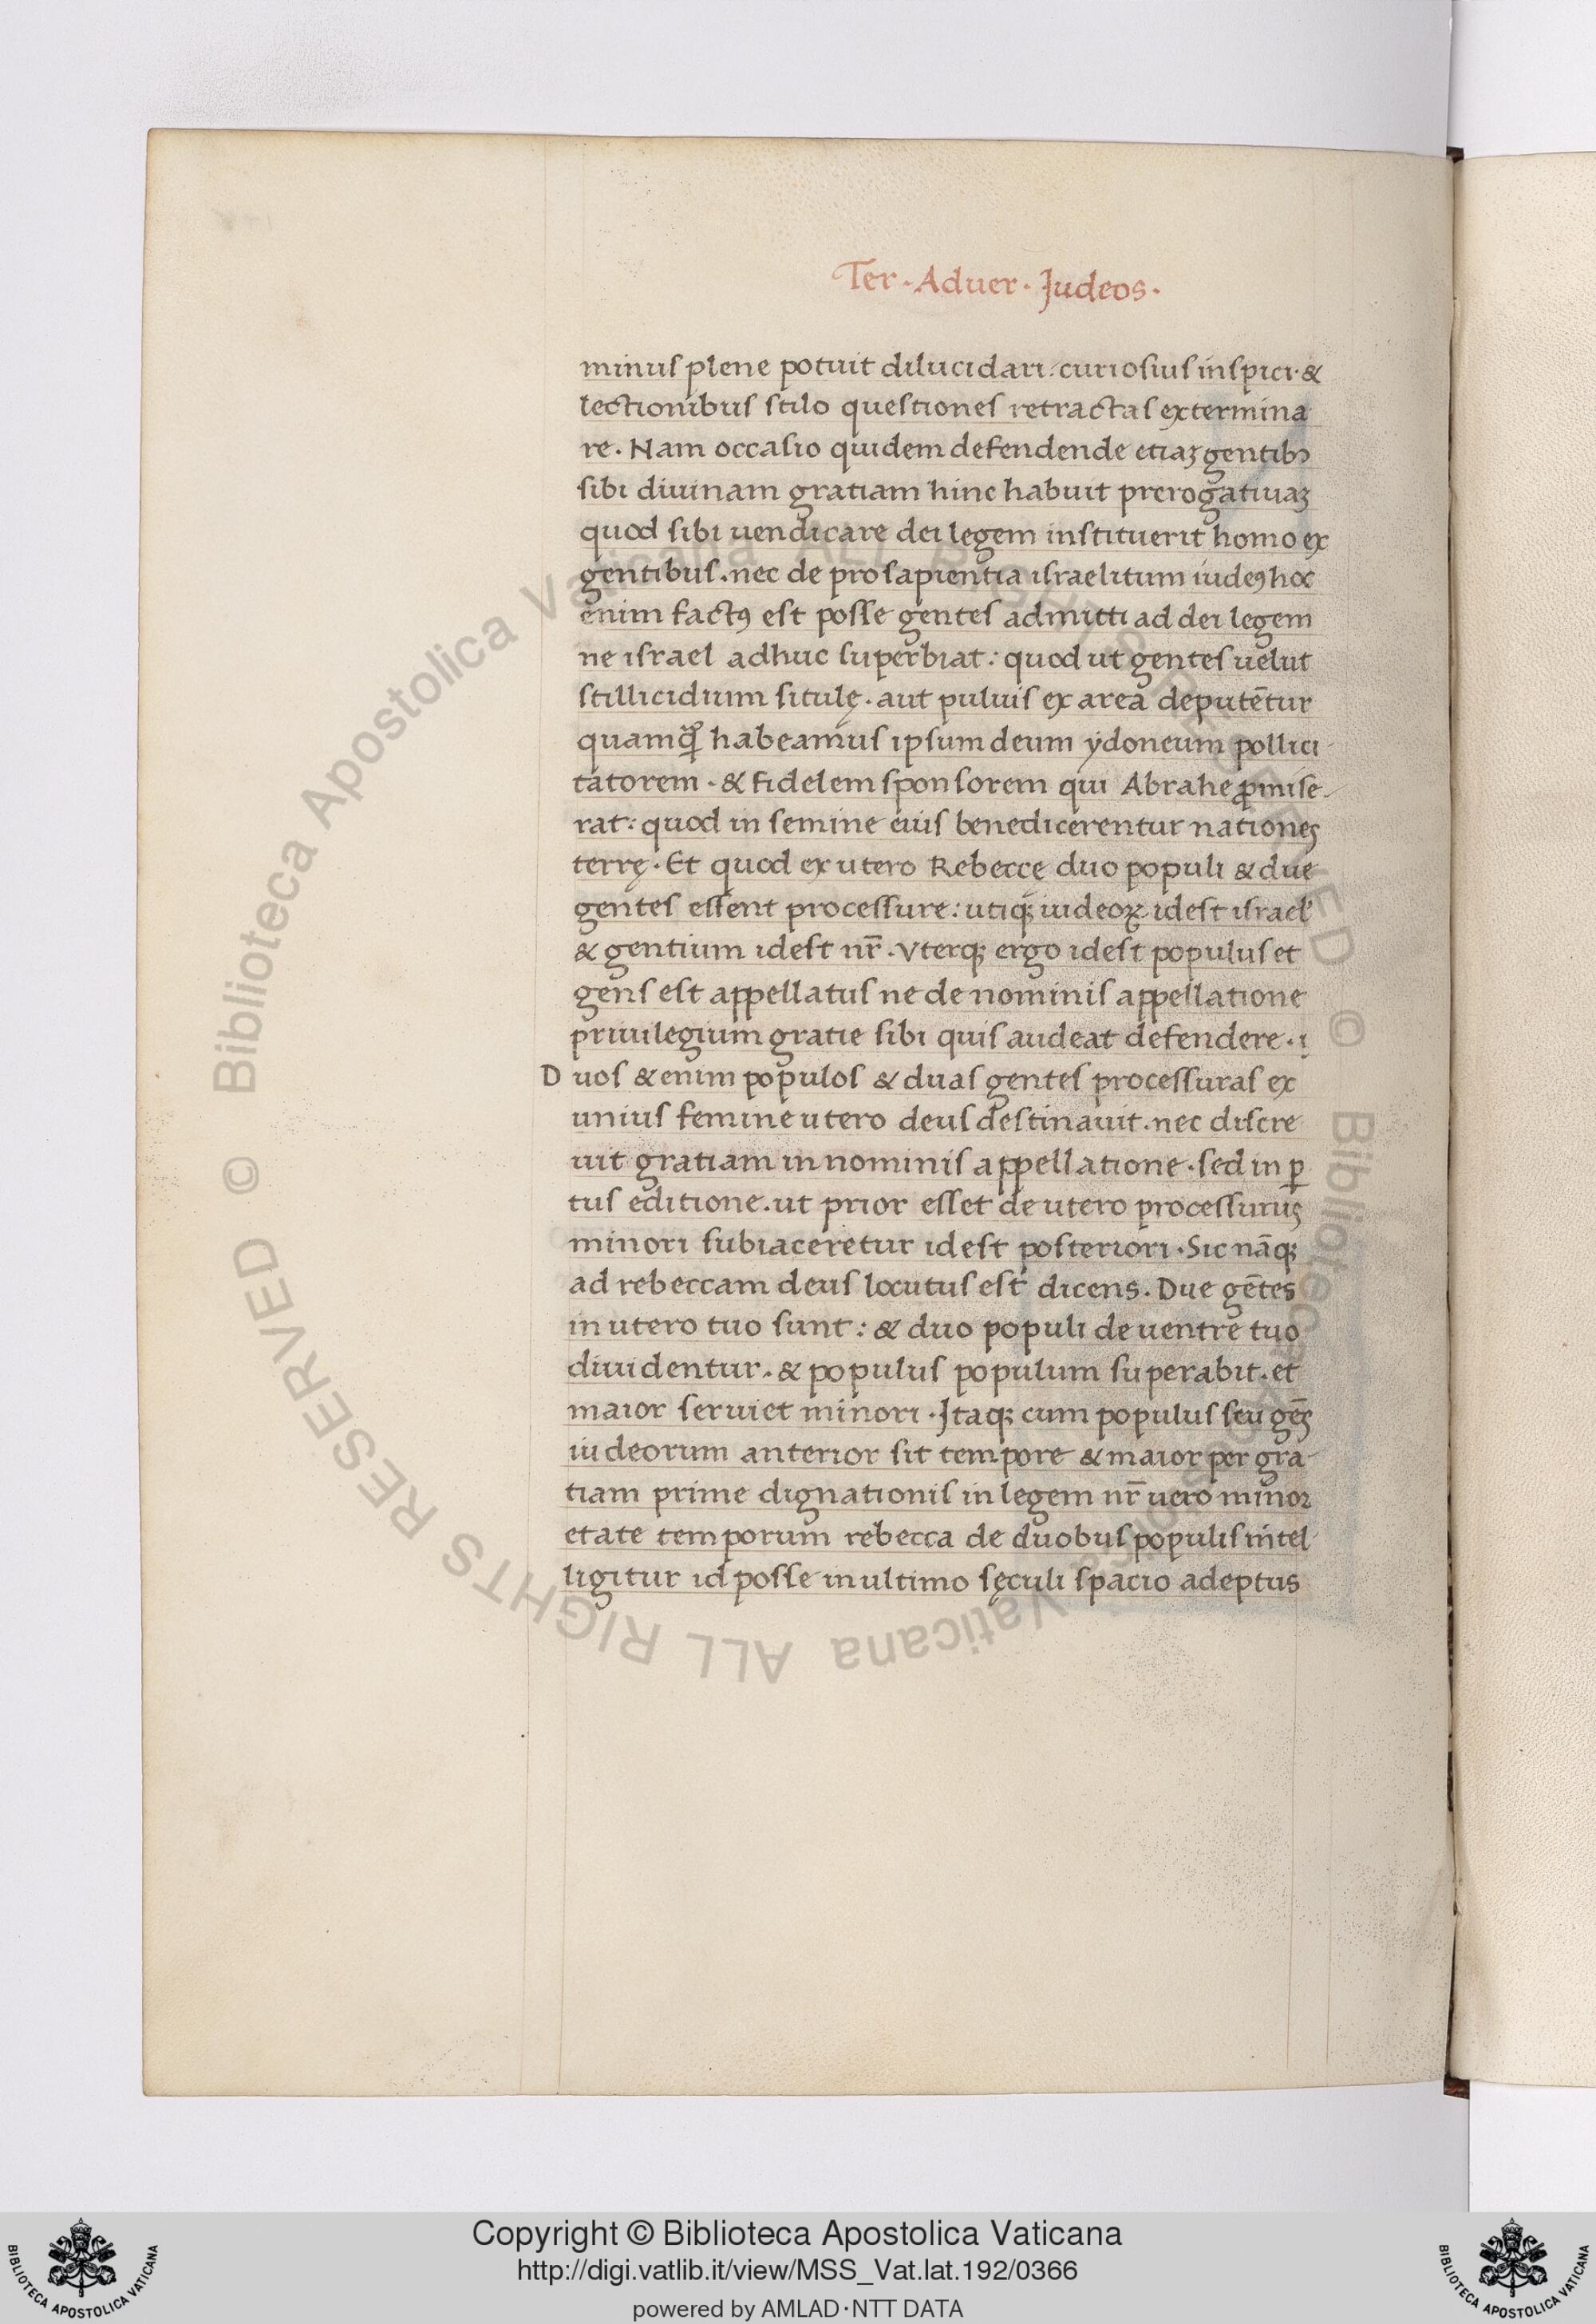 Ter · Aduer · Judeos ·
minus plene potuit dilucidari · curiosius inspici · &
lectionibus stilo questiones retractas extermina
re · Nam occasio quidem defendende etiaꝫ gentibꝰ
sibi diuinam gratiam hinc habuit prerogatiuaꝫ
quod sibi uendicare dei legem instituerit homo ex
gentibus · nec de prosapientia israelitum iudeꝰ hoc
enim factꝰ est posse gentes admitti ad dei legem
ne israel adhuc superbiat : quod ut gentes uelut
stillicidium situlę · aut puluis ex area deputētur
quamqͣ habeamus ipsum deum ydoneum pollici
tatorem · & fidelem sponsorem qui Abrahe ꝓmise
rat : quod in semine eius benedicerentur nationes
terrę · Et quod ex utero Rebecce duo populi & due
gentes essent processure : utiqꝫ iudeoꝝ idest israel
& gentium idest nr̄ · Vterqꝫ ergo idest populus et
gens est appellatus ne de nominis appellatione
priuilegium gratie sibi quis audeat defendere ·
Duos & enim populos & duas gentes processuras ex
unius femine utero deus destinauit · nec discre
uit gratiam in nominis appellatione · sed in ꝑ
tus editione · ut prior esset de utero processurus
minori subiaceretur idest posteriori · Sic nāqꝫ
ad rebeccam deus locutus est dicens · Due gētes
in utero tuo sunt : & duo populi de uentre tuo
diuidentur · & populus populum superabit · et
maior seruiet minori · Jtaqꝫ cum populus seu gēs
iudeorum anterior sit tempore & maior per gra
tiam prime dignationis in legem nr̄ uero minor
etate temporum rebecca de duobus populis intel
ligitur id posse in ultimo sęculi spacio adeptus
© Biblioteca Apostolica Vaticana ALL RIGHTS RESERVED © Biblioteca Apostolica Vaticana ALL RIGHTS RESERVED
Copyright © Biblioteca Apostolica Vaticana
http://digi.vatlib.it/view/MSS_Vat.lat.192/0366
powered by AMLAD·NTT DATA
BIBLIOTECA APOSTOLICA VATICANA
BIBLIOTECA APOSTOLICA VATICANA